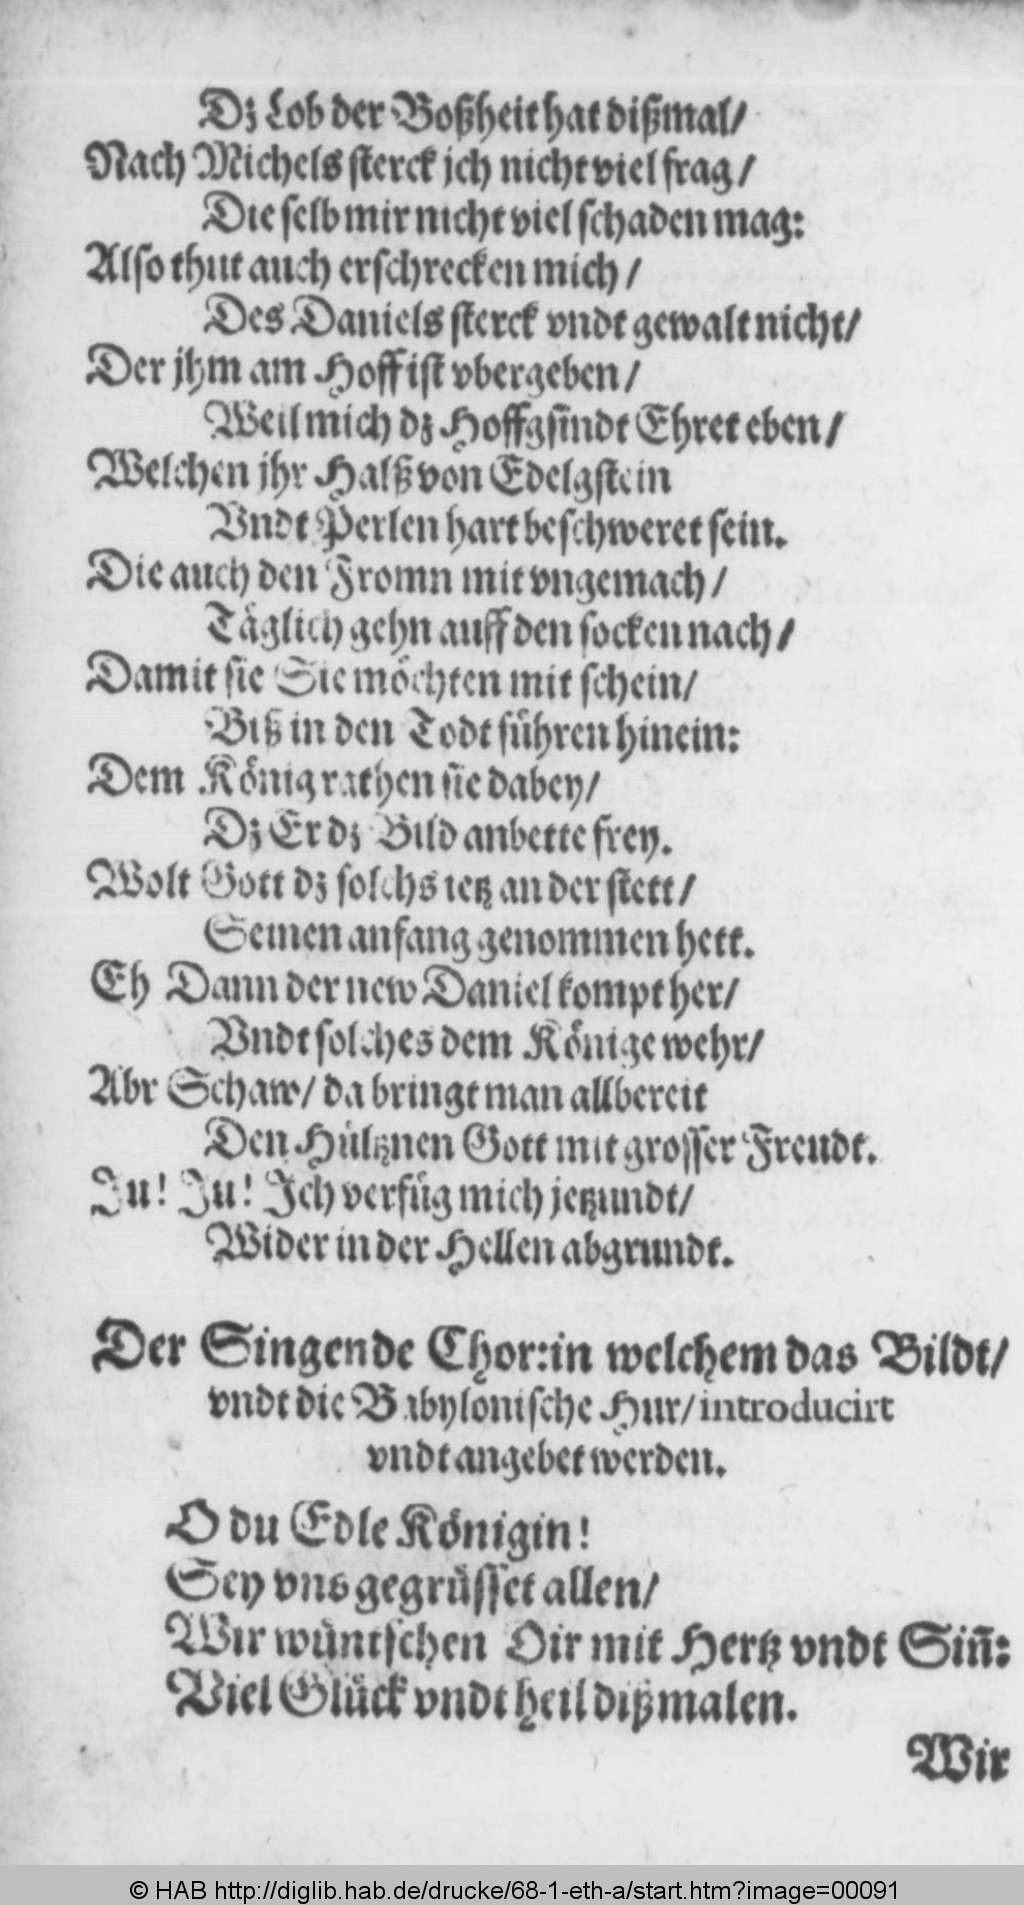 Dz Lob der Boßheit hat dißmal/
Nach Michels sterck jch nicht viel frag/
Die selb mir nicht viel schaden mag:
Also thut auch erschrecken mich/
Des Daniels sterck vndt gewalt nicht/
Der jhm am Hoff ist vbergeben/
Weil mich dz Hoffgsindt Ehret eben/
Welchen jhr Halß von Edelgstein
Vndt Perlen hart beschweret sein.
Die auch den Fromn mit vngemach/
Täglich gehn auff den socken nach/
Damit sie Sie möchten mit schein/
Biß in den Todt führen hinein:
Dem König rathen sie dabey/
Dz Er dz Bild anbette frey.
Wolt Gott dz solchs ietz an der stett/
Seinen anfang genommen hett.
Eh Dann der new Daniel kompt her/
Vndt solches dem Könige wehr/
Abr Schaw/ da bringt man allbereit
Den Hültznen Gott mit grosser Freudt.
Ju! Ju! Jch verfüg mich jetzundt/
Wider in der Hellen abgrundt.
Der Singende Chor: in welchem das Bildt/
vndt die Babylonische Hur/ introducirt
vndt angebet werden.
O du Edle Königin!
Sey vns gegrüsset allen/
Wir wüntschen Dir mit Hertz vndt Sin̄:
Viel Glück vndt heil dißmalen.
Wir
© HAB http://diglib.hab.de/drucke/68-1-eth-a/start.htm?image=00091